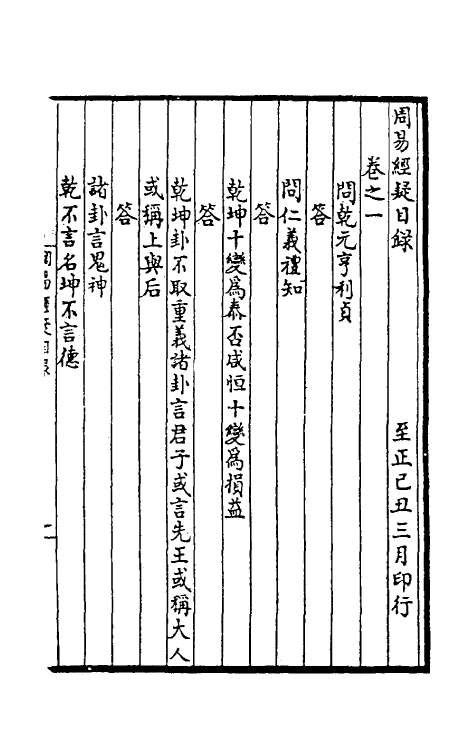 周易經疑目録　至正己丑三月印行
卷之一
問乾元亨利貞
答
問仁義禮知
答
乾坤十變爲泰否咸恒十變爲損益
答
乾坤卦不取重義諸卦言君子或言先王或稱大人
或稱上與后
答
諸卦言鬼神
乾不言名坤不言德